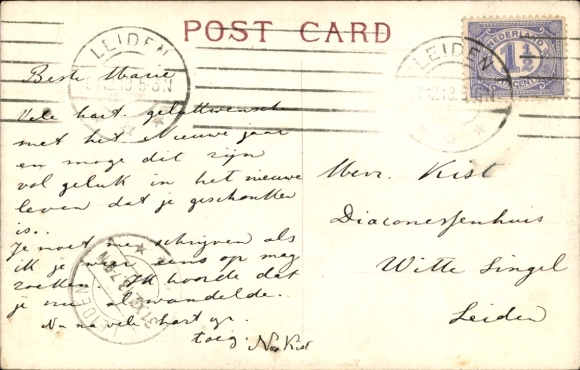 POST CARD
LEIDEN
LEIDEN
NEDERLAND
1½
CENT
Beste Marie
Vele hart. gelukwensch
met het Nieuwe jaar
en moge dit zijn
vol geluk in het nieuwe
leven dat je geschonken
is..
Je moet me schrijven als
ik je weer eens op mag
zoeken. Ik hoorde dat
je nu al wandelde.
Nu na vele hart gr.
toeg. Kist
Mevr. Kist
Diaconessenhuis
Witte Singel
Leiden
LEIDEN